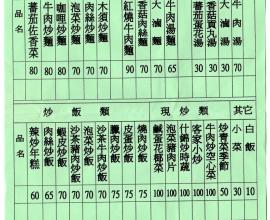 牛肉湯
大滷湯
蕃茄蛋花湯 30
牛肉湯麵 65
大滷麵 70
香菇肉絲麵 70
紅燒牛肉麵 90
木須炒麵 70
肉絲炒麵 70
泡菜炒麵 70
咖哩炒麵 80
牛肉炒麵 80
蕃茄佐香菜 80
品名
其它
白飯 10
小菜 30
炒青菜季節 50
現炒類
牛肉炒空心菜 100
客家小炒 100
什錦炒時蔬 100
泡菜豬肉片 100
鹹蛋花椰菜 100
炒飯類
燒肉炒飯 75
皮蛋炒飯 75
臘肉炒飯 75
沙茶牛肉炒飯 70
泡菜炒飯 70
沙茶豬肉炒飯 70
蝦皮炒飯 70
肉絲炒飯 65
辣炒年糕 60
品名